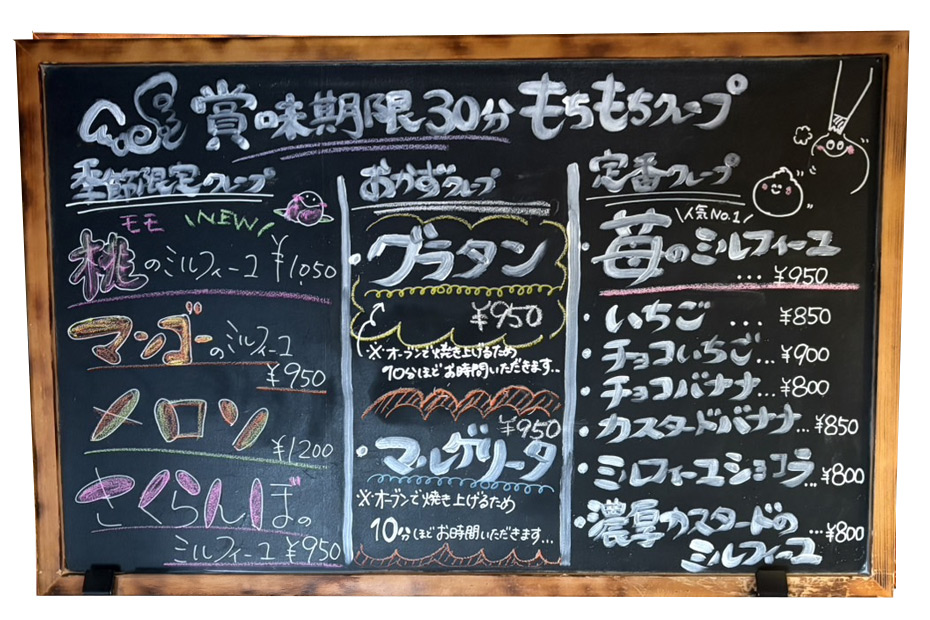 賞味期限30分 もちもちクレープ
季節限定クレープ
モモ \NEW/
桃のミルフィーユ ¥1,050
マンゴーのミルフィーユ
¥950
メロン
¥1200
さくらんぼの
ミルフィーユ ¥950
おかずクレープ
・グラタン
¥950
※オーブンで焼き上げるため
10分ほどお時間いただきます…
¥950
・マルゲリータ
※オーブンで焼き上げるため
10分ほどお時間いただきます…
定番クレープ
\人気No.1/
・苺のミルフィーユ
… ¥950
・いちご … ¥850
・チョコいちご… ¥900
・チョコバナナ… ¥800
・カスタードバナナ… ¥850
・ミルフィーユショコラ… ¥800
・濃厚カスタードの
ミルフィーユ … ¥800